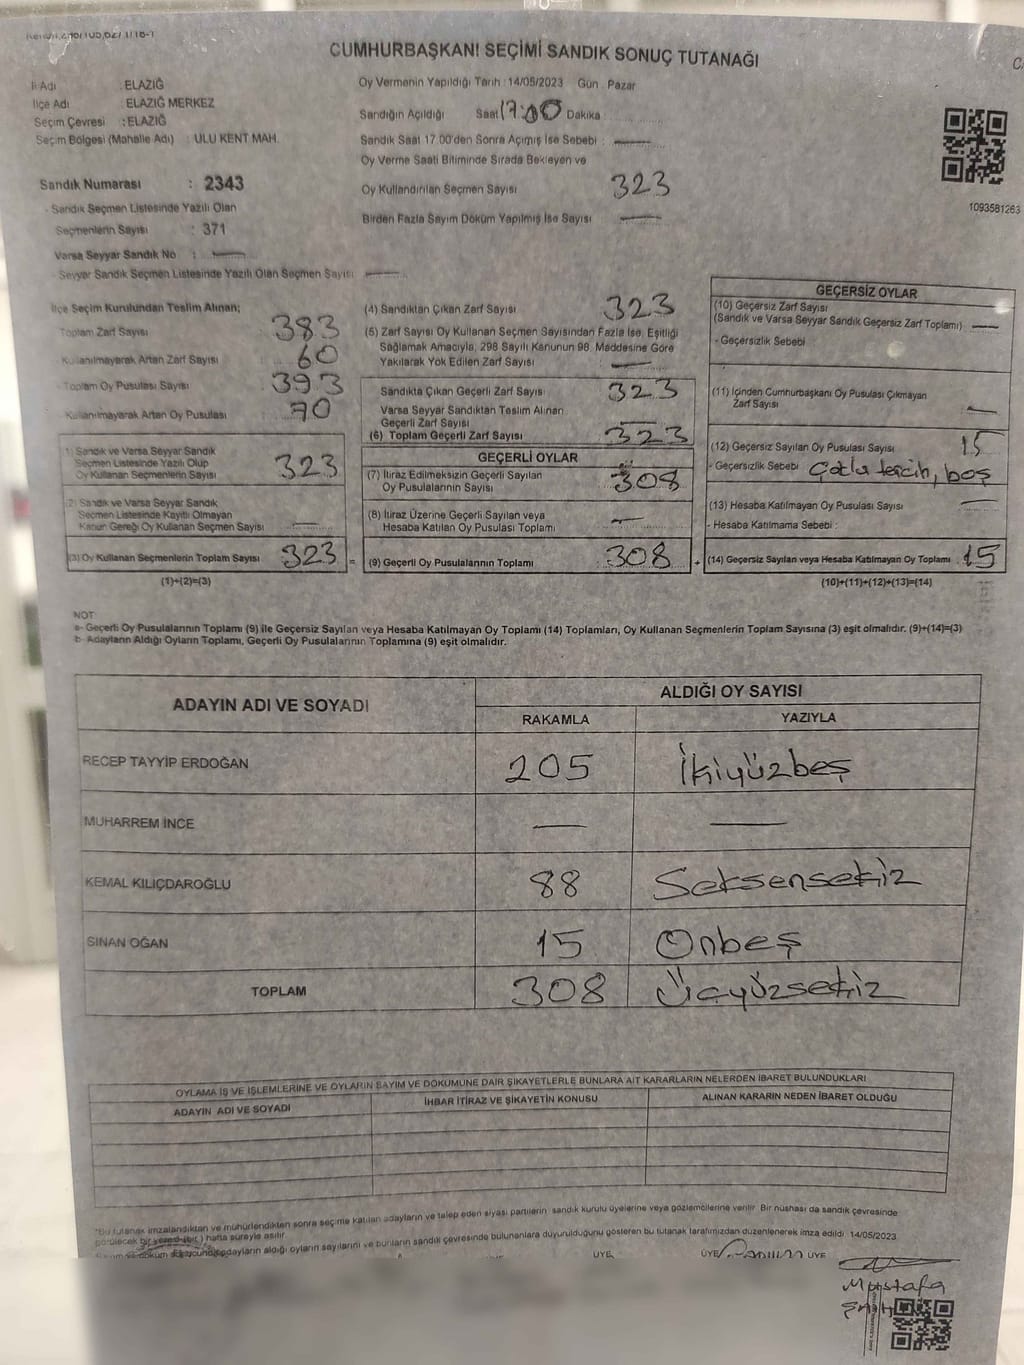 CUMHURBAŞKANI SEÇİMİ SANDIK SONUÇ TUTANAĞI
İl Adı : ELAZIĞ
İlçe Adı : ELAZIĞ MERKEZ
Seçim Çevresi : ELAZIĞ
Seçim Bölgesi (Mahalle Adı) : ULU KENT MAH.
Oy Vermenin Yapıldığı Tarih : 14/05/2023 Gün : Pazar
Sandığın Açıldığı Saat 17:00 Dakika :
Sandık Saat 17.00'den Sonra Açmış İse Sebebi : —
Oy Verme Saati Bitiminde Sırada Bekleyen ve
Oy Kullandırılan Seçmen Sayısı 323
Birden Fazla Sayım Döküm Yapılmış İse Sayısı —
1093581263
Sandık Numarası : 2343
- Sandık Seçmen Listesinde Yazılı Olan
Seçmenlerin Sayısı : 371
Varsa Seyyar Sandık No : —
- Seyyar Sandık Seçmen Listesinde Yazılı Olan Seçmen Sayısı : —
İlçe Seçim Kurulundan Teslim Alınan;
Toplam Zarf Sayısı 383
Kullanılmayarak Artan Zarf Sayısı 60
- Toplam Oy Pusulası Sayısı 393
Kullanılmayarak Artan Oy Pusulası 70
1) Sandık ve Varsa Seyyar Sandık
Seçmen Listesinde Yazılı Olup
Oy Kullanan Seçmenlerin Sayısı 323
(2) Sandık ve Varsa Seyyar Sandık
Seçmen Listesinde Kayıtlı Olmayan
Kanun Gereği Oy Kullanan Seçmen Sayısı —
(3) Oy Kullanan Seçmenlerin Toplam Sayısı 323 =
(1)+(2)=(3)
(4) Sandıktan Çıkan Zarf Sayısı 323
(5) Zarf Sayısı Oy Kullanan Seçmen Sayısından Fazla İse, Eşitliği
Sağlamak Amacıyla, 298 Sayılı Kanunun 98. Maddesine Göre
Yakılarak Yok Edilen Zarf Sayısı —
Sandıkta Çıkan Geçerli Zarf Sayısı 323
Varsa Seyyar Sandıktan Teslim Alınan
Geçerli Zarf Sayısı —
(6) Toplam Geçerli Zarf Sayısı 323
GEÇERLİ OYLAR
(7) İtiraz Edilmeksizin Geçerli Sayılan
Oy Pusulalarının Sayısı 308
(8) İtiraz Üzerine Geçerli Sayılan veya
Hesaba Katılan Oy Pusulası Toplamı —
(9) Geçerli Oy Pusulalarının Toplamı 308 +
GEÇERSİZ OYLAR
(10) Geçersiz Zarf Sayısı
(Sandık ve Varsa Seyyar Sandık Geçersiz Zarf Toplamı) —
- Geçersizlik Sebebi
(11) İçinden Cumhurbaşkanı Oy Pusulası Çıkmayan
Zarf Sayısı —
(12) Geçersiz Sayılan Oy Pusulası Sayısı 15
- Geçersizlik Sebebi Çoklu tercih, boş
(13) Hesaba Katılmayan Oy Pusulası Sayısı —
- Hesaba Katılmama Sebebi :
(14) Geçersiz Sayılan veya Hesaba Katılmayan Oy Toplamı 15
(10)+(11)+(12)+(13)=(14)
NOT
a- Geçerli Oy Pusulalarının Toplamı (9) ile Geçersiz Sayılan veya Hesaba Katılmayan Oy Toplamı (14) Toplamları, Oy Kullanan Seçmenlerin Toplam Sayısına (3) eşit olmalıdır. (9)+(14)=(3)
b- Adayların Aldığı Oyların Toplamı, Geçerli Oy Pusulalarının Toplamına (9) eşit olmalıdır.
ADAYIN ADI VE SOYADI ALDIĞI OY SAYISI
RAKAMLA YAZIYLA
RECEP TAYYİP ERDOĞAN 205 İkiyüzbeş
MUHARREM İNCE — —
KEMAL KILIÇDAROĞLU 88 Seksensekiz
SİNAN OĞAN 15 Onbeş
TOPLAM 308 Üçyüzsekiz
OYLAMA İŞ VE İŞLEMLERİNE VE OYLARIN SAYIM VE DÖKÜMÜNE DAİR ŞİKAYETLERLE BUNLARA AİT KARARLARIN NELERDEN İBARET BULUNDUKLARI
ADAYIN ADI VE SOYADI İHBAR İTİRAZ VE ŞİKAYETİN KONUSU ALINAN KARARIN NEDEN İBARET OLDUĞU
"Bu tutanak imzalandıktan ve mühürlendikten sonra seçime katılan adayların ve talep eden siyasi partilerin sandık kurulu üyelerine veya gözlemcilerine verilir. Bir nüshası da sandık çevresinde
görülecek bir yere (bir) hafta süreyle asılır.
adayların aldığı oyların sayılarını ve bunların sandık çevresinde bulunanlara duyurulduğunu gösteren bu tutanak tarafımızdan düzenlenerek imza edildi. 14/05/2023
ÜYE ÜYE ÜYE
Mustafa